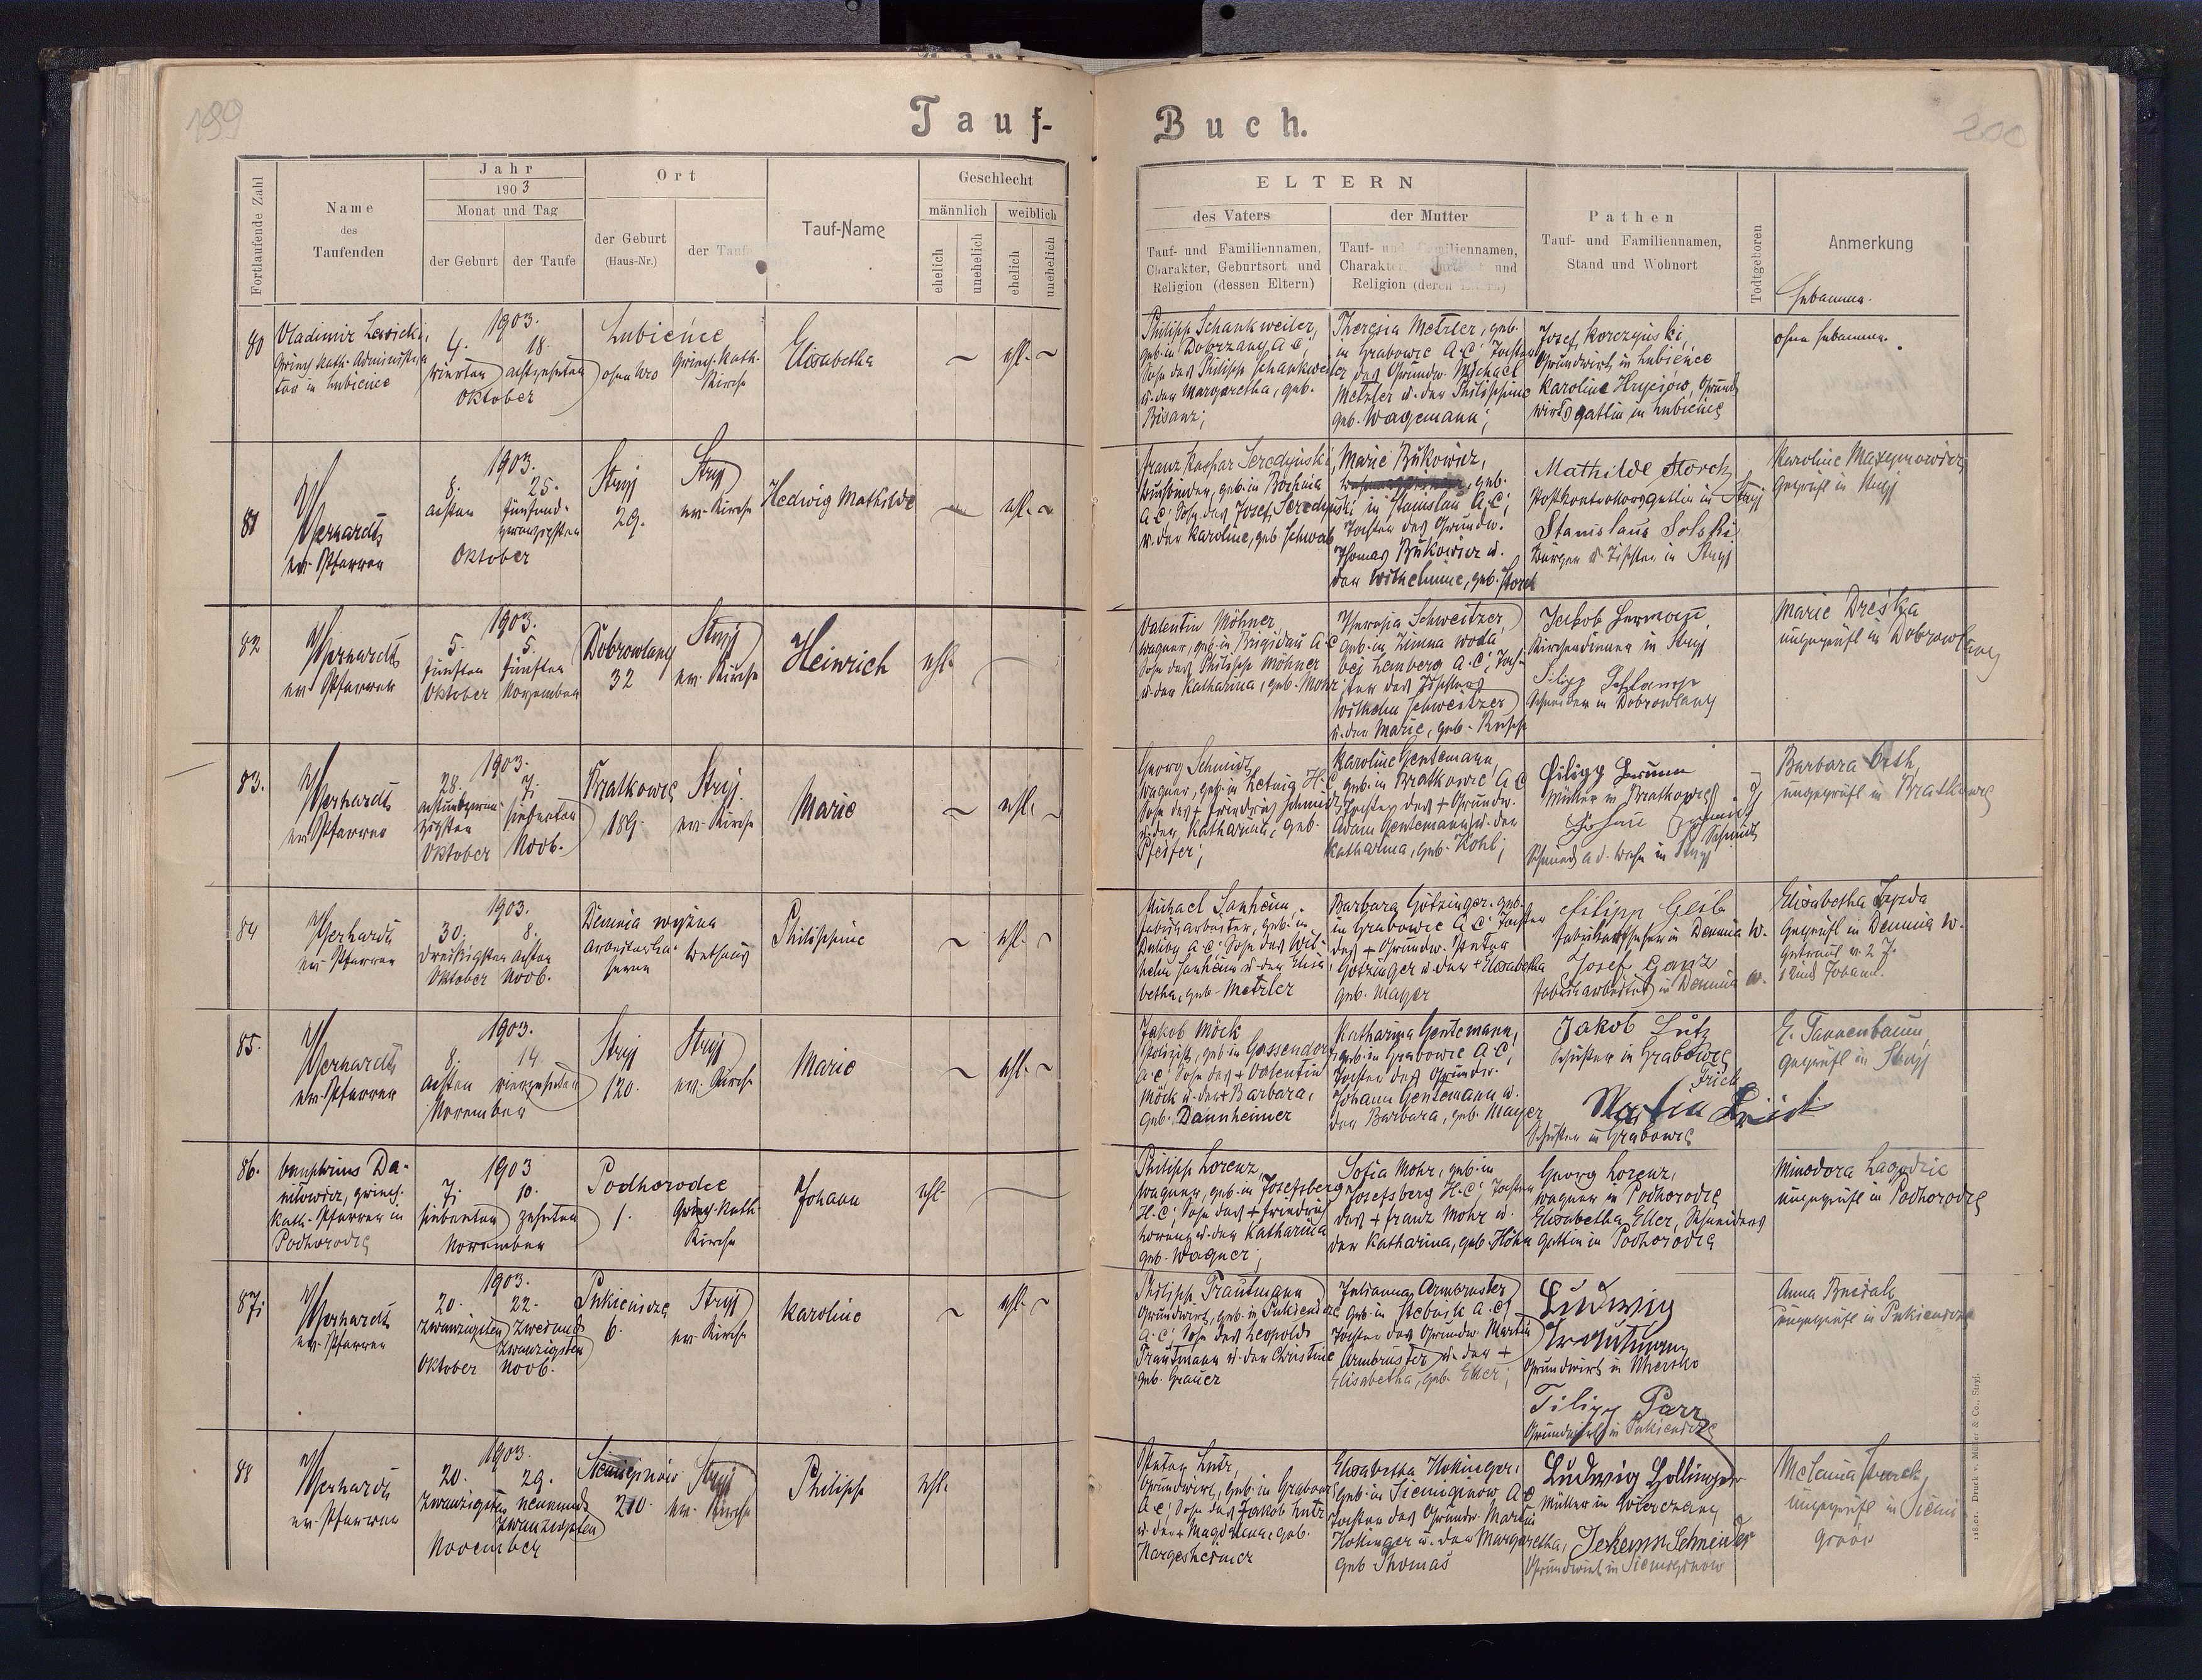 199
Tauf-
Fortlaufende Zahl
Name
des
Taufenden
Jahr
1903
Monat und Tag
der Geburt
der Taufe
Ort
der Geburt
(Haus-Nr.)
der Taufe
Tauf-Name
Geschlecht
männlich
weiblich
ehelich
unehelich
ehelich
unehelich
80
Vladimir Lewicki,
Griech. Kath. Administra-
tor in Lubience
1903.
4. 18.
vierten achtzehnten
Oktober
Lubieńce
ohne Nro
Griech. Kath.
Kirche
Elisabetha
ehl.
81
Gerhardt
ev. Pfarrer
1903.
8. 25.
achten fünfund-
zwanzigsten
Oktober
Stryj
29.
Stryj
ev. Kirche
Hedwig Mathilde
ehl.
82
Gerhardt
ev. Pfarrer
1903.
5. 5.
fünften fünften
Oktober November
Dobrowlany
32
Stryj
ev. Kirche
Heinrich
ehl.
83.
Gerhardt
ev. Pfarrer
1903.
28. 7.
achtundzwan-
zigsten siebenten
Oktober Novb.
Bratkowce
189.
Stryj.
ev. Kirche
Marie
ehl.
84
Gerhardt
ev. Pfarrer
1903.
30. 8.
dreißigsten achten
Oktober Novb.
Demnia wyżna
Bethaus
Philippine
ehl.
85.
Gerhardt
ev. Pfarrer
1903.
8. 14.
achten vierzehnten
November
Stryj
120.
Stryj
ev. Kirche
Marie
ehl.
86.
Onuphrius Da-
niłowicz, griech.
Kath. Pfarrer in
Podhorodce
1903
7. 10.
siebenten zehnten
November
Podhorodce
1.
Griech. Kath.
Kirche
Johann
ehl.
87.
Gerhardt
ev. Pfarrer
1903.
20. 22.
zwanzigsten zweiund-
zwanzigsten
Oktober Novb.
Pukienicze
6.
Stryj
ev. Kirche
Karoline
ehl.
88
Gerhardt
ev. Pfarrer
1903.
20. 29.
zwanzigsten neunund-
zwanzigsten
November
Siemiginów
210.
Stryj
ev. Kirche
Philipp
ehl.
200
Buch.
ELTERN
des Vaters
der Mutter
Tauf- und Familiennamen,
Charakter, Geburtsort und
Religion (dessen Eltern)
Tauf- und Familiennamen,
Charakter, und
Religion (deren Eltern)
Pathen
Tauf- und Familiennamen,
Stand und Wohnort
Todtgeboren
Anmerkung
Hebamme.
Philipp Schankweiler,
geb. in Dobrzany A.C.,
Sohn des Philipp Schankweiler
u. der Margaretha, geb.
Bisanz;
Theresia Metzler, geb.
in Grabowce A.C., Tochter
des Grundw. Michael
Metzler u. der Philippine
geb. Wagemann;
Josef Korczyński,
Grundwirt in Lubience
Karoline Hryciów, Grund-
wirtsgattin in Lubience
ohne Hebamme.
Franz Kaspar Seredyński,
geb. in Bochnia
A.C., Sohn des Josef Seredyński
u. der Karoline, geb. Schwab
Marie Bukowicz,
geb.
in Stanislau A.C.,
Tochter des Grundw.
Thomas Bukowicz u.
der Wilhelmine, geb. Storch
Mathilde Storch
Postkontrolorsgattin in Stryj
Stanislaus Solski
Bürger u. Tischler in Stryj
Karoline Maxymowicz
Geprüft in Stryj
Valentin Möhner,
Wagner, geb. in Brigidau A.C.
Sohn des Philipp Möhner
u. der Katharina, geb. Mohr
Theresia Schweitzer,
geb. in Zimna woda
bei Lemberg A.C., Toch-
ter des Tischlers
Wilhelm Schweitzer
u. der Marie, geb. Rupp
Jakob Hermann
Kirchendiener in Stryj
Filipp
Schneider in Dobrowlany
Marie Dreska
ungeprüft in Dobrowlany
Georg Schmidt,
Wagner, geb. in Ketnig H.C.
Sohn des + Friedrich Schmidt
u. der Katharina, geb.
Pfeifer;
Karoline Gentemann,
geb. in Bratkowce A.C.
Tochter des + Grundw.
Adam Gentemann u. der
Katharina, geb. Kohl;
Filipp
Müller in Bratkowce
Johann Schmidt
Schmidt
Schmied a. d. Bahn in Stryj
Barbara Orth,
ungeprüft in Bratkowce
Michael Sanheim,
Fabriksarbeiter, geb. in
A.C. Sohn des Wil-
helm Sanheim u. der Elisa-
betha, geb. Metzler
Barbara Götzinger, geb.
in Grabowce A.C. Tochter
des + Grundw. Peter
Götzinger u. der + Elisabetha
geb. Mayer
Filipp Geib
in Demnia W.
Josef Ganz
Fabriksarbeiter in Demnia w.
Elisabetha
Geprüft in Demnia W.
Getraut v. 2 J.
1 Kind Johann.
Jakob Möck
Polizist, geb. in Gassendorf,
A.C. Sohn des + Valentin
Möck u. der + Barbara,
geb. Dannheimer
Katharina Gentemann,
geb. in Grabowce A.C.,
Tochter des Grundw.
Johann Gentemann u.
der Barbara, geb. Mayer
Jakob Lutz
Schuster in Grabowce
Frick
Martin Frick
Schuster in Grabowce
E. Tannenbaum,
geprüft in Stryj
Philipp Lorenz,
Wagner, geb. in Josefsberg
H.C., Sohn des + Friedrich
Lorenz u. der Katharina
geb. Wagner;
Sofia Mohr, geb. in
Josefsberg H.C., Tochter
des + Franz Mohr u.
der Katharina, geb. Höhn
Georg Lorenz,
Wagner in Podhorodce
Elisabetha Eller, Schneiders
Gattin in Podhorodce
Minodora Lagodzic
ungeprüft in Podhorodce
Philipp Trautmann
Grundwirt, geb. in Pukienicze
A.C. Sohn des Leopold
Trautmann u. der Christine
geb. Grauer
Julianna Armbruster
geb. in Stebnik A.C.,
Tochter des Grundw. Martin
Armbruster u. der +
Elisabetha, geb. Eller;
Ludwig
Trautmann
Grundwirt in Uhersko
Filipp Parr
Grundwirt in Pukienicze
Anna
ungeprüft in Pukienicze
Peter Lutz,
Grundwirt, geb. in Grabowce
A.C. Sohn des Jakob Lutz
u. der + Magdalena, geb.
Hargesheimer
Elisabetha Hokinger,
geb. in Siemiginów A.C.
Tochter des Grundw. Martin
Hokinger u. der Margaretha,
geb. Thomas
Ludwig Hollinger
Müller in Wierczany
Schneider
Grundwirt in Siemiginów
Melania
ungeprüft in Siemi-
ginów
118.01. Druck v. Müller & Co., Stryj.